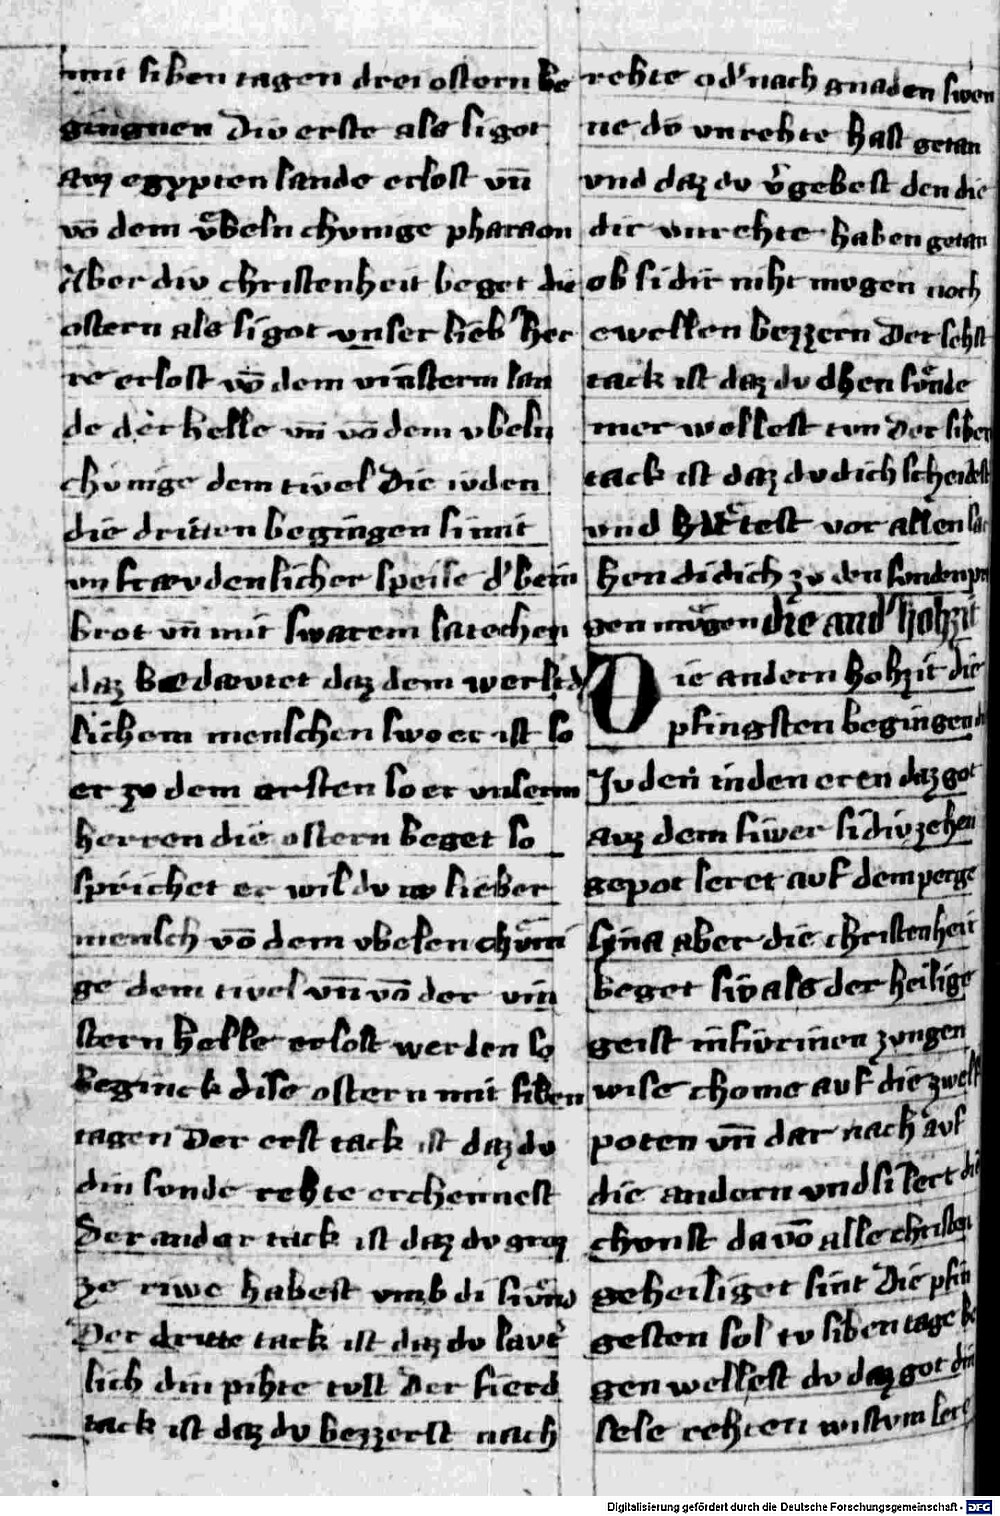 mit siben tagen drei ostern be
gingnen Div erste als si got
auz egypten lande erlost vn̄
vō dem vͤbeln chvnige pharaon
Aber div christenheit beget die
ostern als si got vnser lieb' her
re erlost vō dem vinsterm lan
de der helle vn̄ vō dem vbeln
chvnige dem tivel Die ivden
die dritten begingen si mit
vn frævdenlicher speise d' bein
brot vn̄ mit swarem latechen
daz bedævtet daz dem werlt
lichem menschen swo er ist so
er zv dem ersten so er vnserm
herren die ostern beget so
sprichet er wil dv lieber
mensch vō dem vbelen chvni
ge dem tivel vn̄ vō der vin
stern helle erlost werden so
beginck dise ostern mit siben
tagen Der erst tack ist daz dv
din svnde rehte erchennest
Der ander tack ist daz dv groz
ze riwe habest vmb di svnd
Der dritte tack ist daz dv lavt'
lich din pihte tvst Der fierd
tack ist daz dv bezzerst nach
rehte od' nach gnaden swen
ne dv vnrehte hast getan
vnd daz dv v'gebest den die
dir vnrehte haben getan
ob si dir niht mvgen noch
ewellen bezzern Der sehst
tack ist daz dv dhen svͤnde
mer wellest tvn Der siben
tack ist daz dv dich scheidest
vnd hvͤtest vor allen sa
hen di dich zv den svnden pri
gen mvͤgen die and' hohzit
Die andern hohzit die
pfingsten begingen di
Jvden in den eren daz got
auz dem fiwer si div zehen
gepot leret auf dem perge
syna aber die christenheit
beget siv als der heilige
geist in fivrinen zvngen
wise chome auf die zwelf
poten vn̄ dar nach auf
die andern vnd si lert die
chvnst da vō alle christen
geheiliget sint Die pfin
gesten sol tv siben tage be
gen wellest dv daz got din
sele rehten wistvm lere